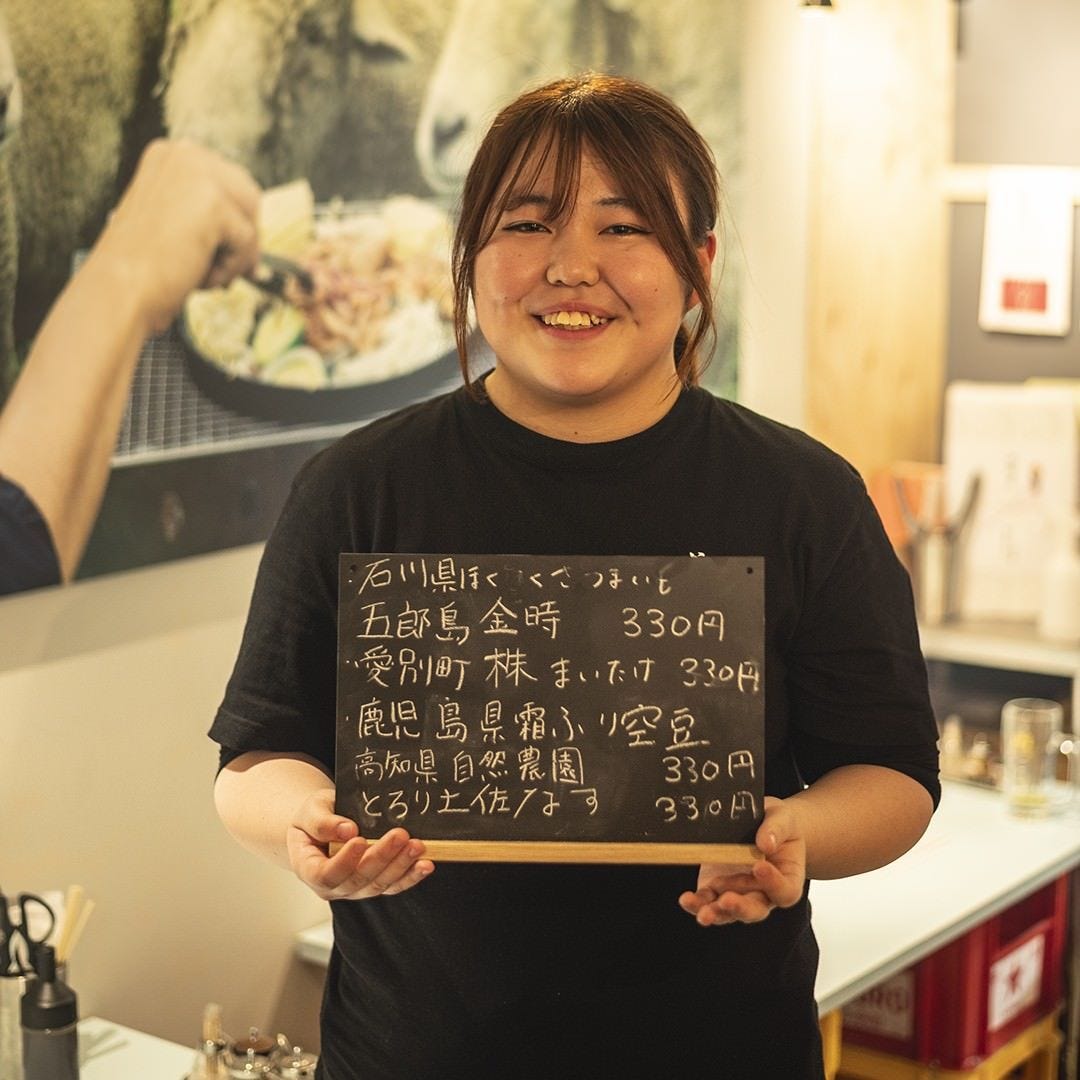 ・石川県ほくほくさつまいも
五郎島金時 330円
・愛別町 株まいたけ 330円
・鹿児島県霜ふり空豆
高知県自然農園 330円
とろり土佐なす 330円